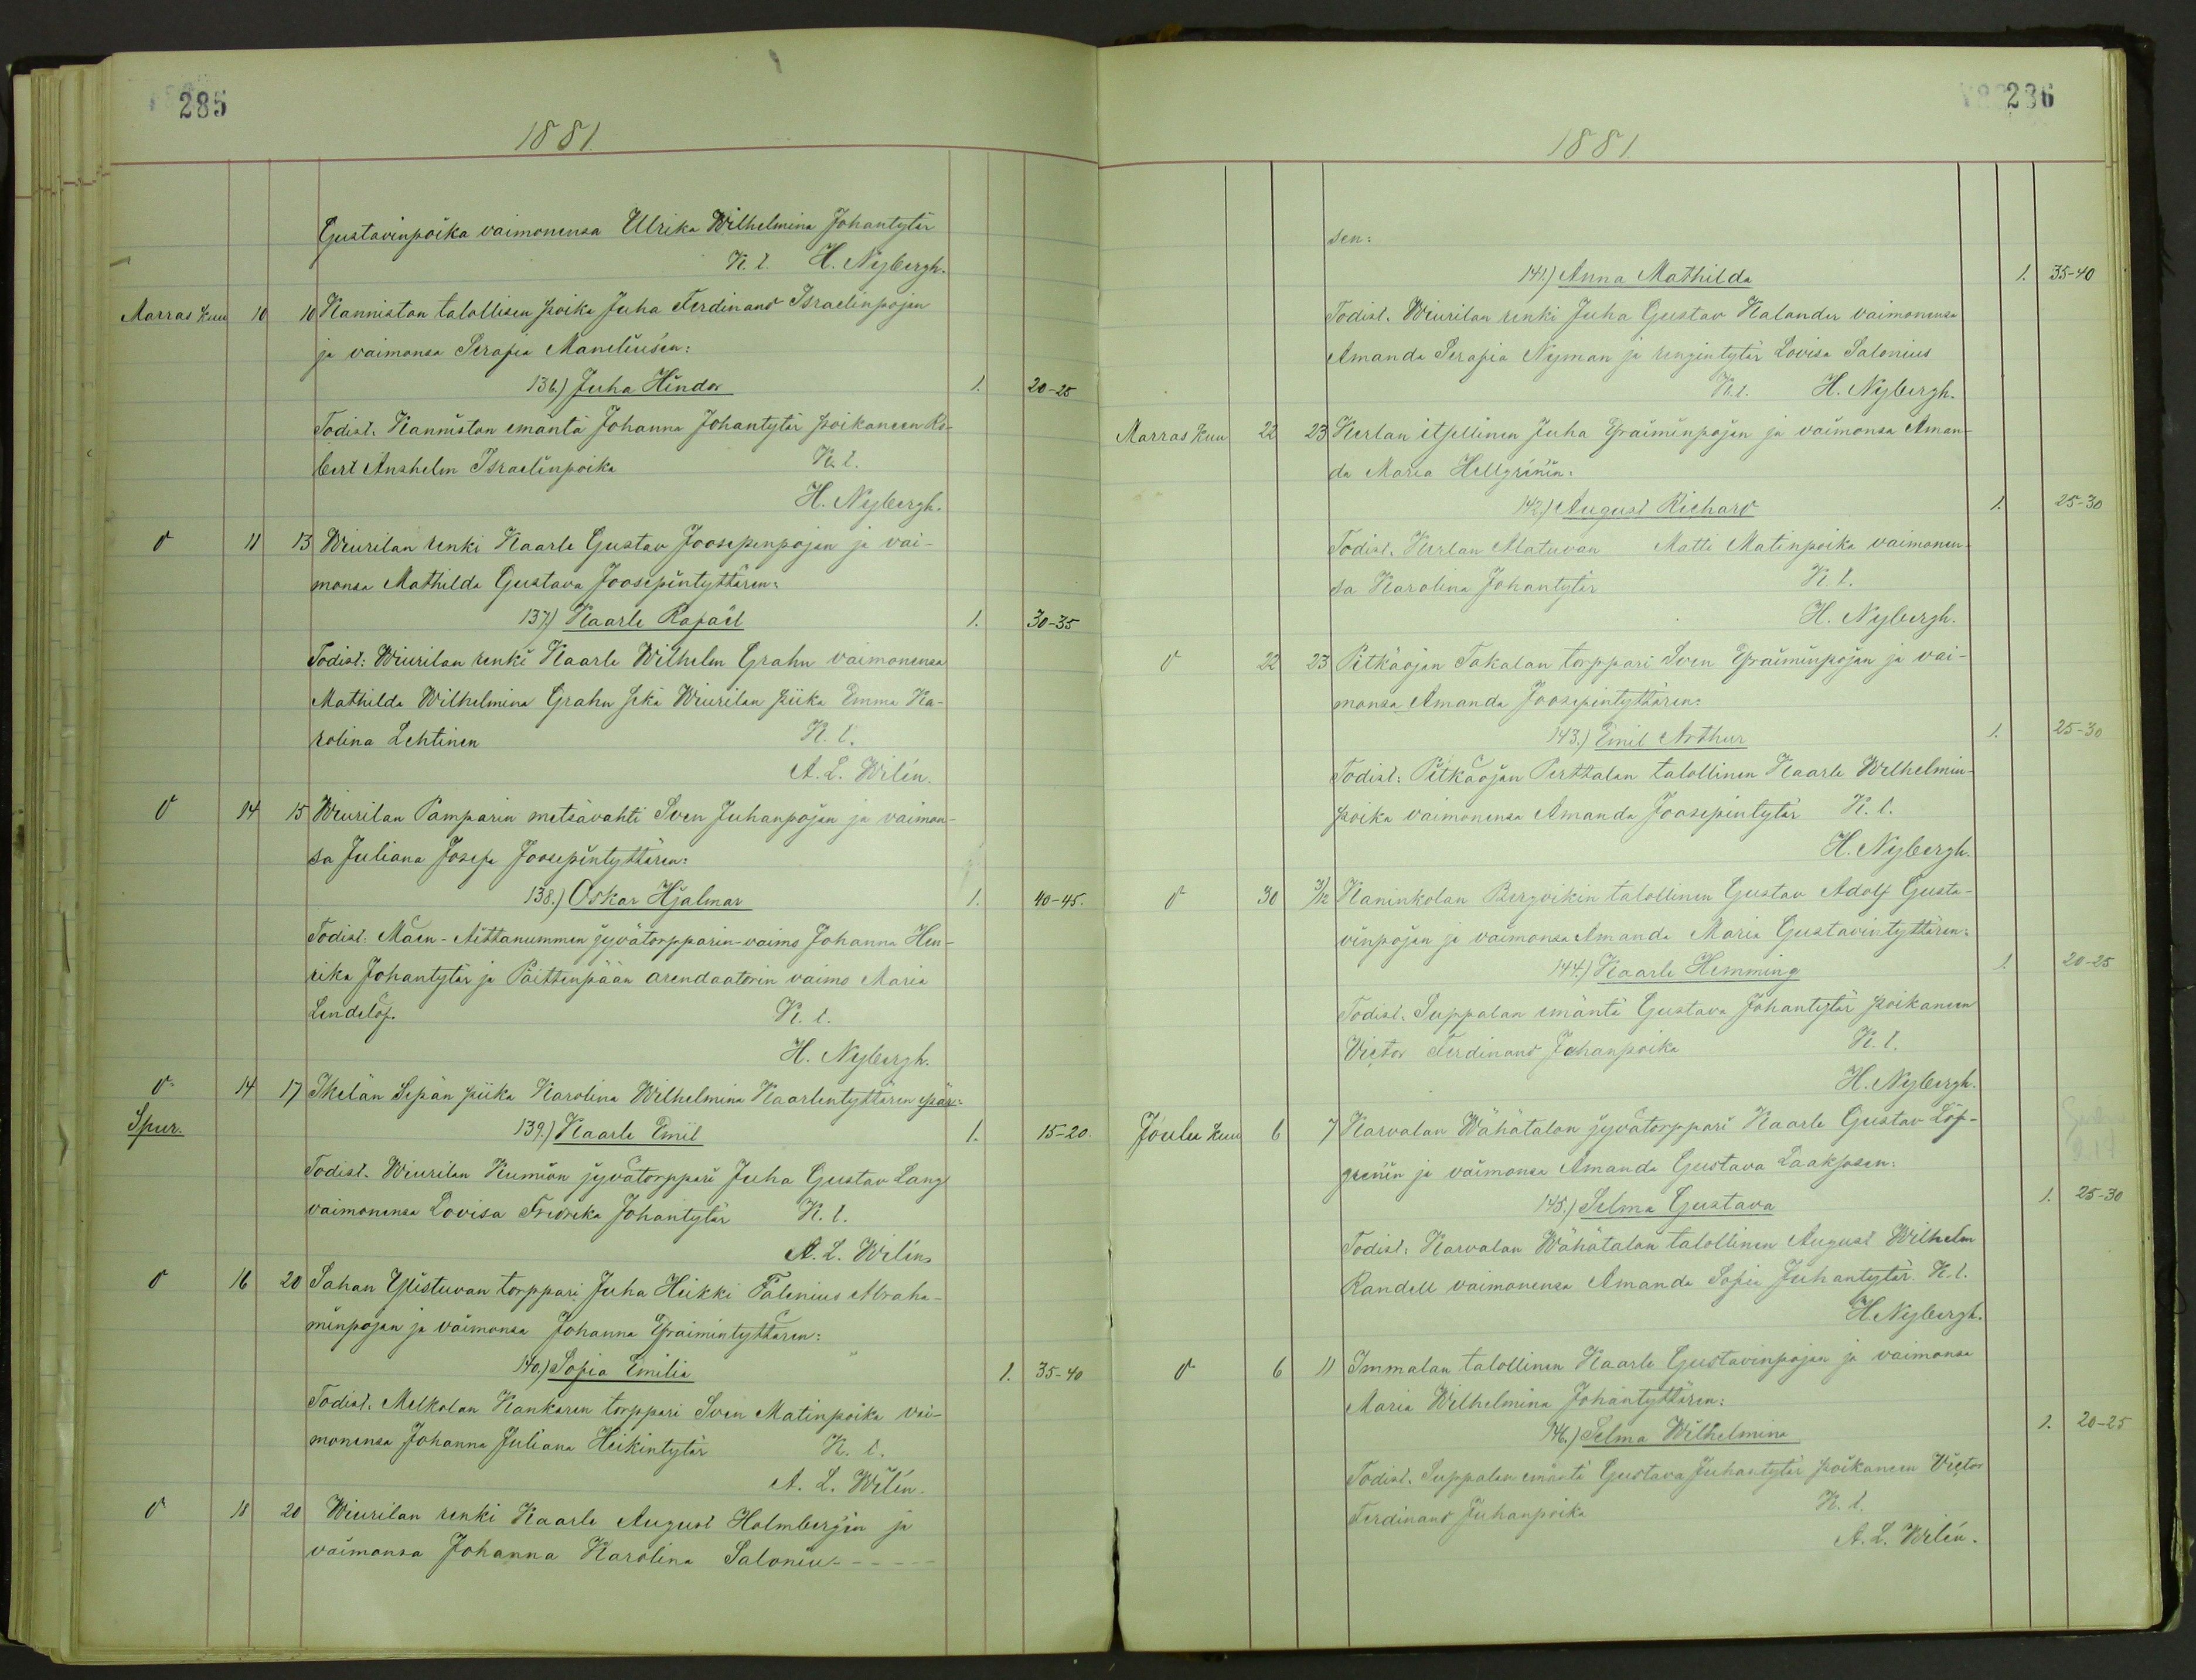 285
1881.
Gustavinpoika vaimonensa Ulrika Wilhelmina Johantytär
K. l. H. Nybergh.
Marras Kuu 10 10 Kanniston talollisen poika Juha Ferdinand Israelinpojan
ja vaimonsa Serafia Maneliusen:
136.) Juha Hindor 1. 20-25
Todist. Kanniston emäntä Johanna Johantytär poikaneen Ro-
bert Anshelm Israelinpoika K. l.
H. Nybergh.
O 11 13 Wiurilan renki Kaarle Gustav Joosepinpojan ja vai-
monsa Mathilda Gustava Joosepintyttären:
137.) Kaarle Rafaël 1. 30-35
Todist: Wiurilan renki Kaarle Wilhelm Grahn vaimonensa
Mathilda Wilhelmina Grahn sekä Wiurilan piika Emma Ka-
rolina Lehtinen K. l.
A. L. Wilén.
O 14 15 Wiurilan Pamparin metsävahti Sven Juhanpojan ja vaimon-
sa Juliana Josefa Joosepintyttären:
138.) Oskar Hjalmar 1. 40-45.
Todist: Mäen-Aittanummen jyvätorpparin-vaimo Johanna Hen-
rika Johantytär ja Päittenpään arendaatorin vaimo Maria
Lendelöf. K. l.
H. Nybergh.
O 14 17 Ikelän Sepän piika Karolina Wilhelmina Kaarlentyttären epär:
Spur. 139.) Kaarle Emil 1. 15-20.
Todist. Wiurilan Kumion jyvätorppari Juha Gustav Lang
vaimonensa Lovisa Fredrika Johantytär K. l.
A. L. Wilén.
O 16 20 Sahan Ylistuvan torppari Juha Heikki Falenius Abraha-
minpojan ja vaimonsa Johanna Efraimintyttären:
140.) Sofia Emilia 1. 35-40
Todist. Melkolan Kankaren torppari Sven Matinpoika vai-
monensa Johanna Juliana Heikintytär K. l.
A. L. Wilén.
O 18 20 Wiurilan renki Kaarle August Holmbergin ja
vaimonsa Johanna Karolina Saloniu-----
286
1881.
sen:
141.) Anna Mathilda 1. 35-40
Todist. Wiurilan renki Juha Gustav Kalander vaimonensa
Amanda Serafia Nyman ja rengintytär Lovisa Salonius
K. l. H. Nybergh.
Marras Kuu 22 23 Kerlan itsellinen Juha Efraiminpojan ja vaimonsa Aman-
da Maria Hellgrénin:
142.) August Richard 1. 25-30
Todist. Kerlan Alatuvan Matti Matinpoika vaimonen-
sa Karolina Johantytär K. l.
H. Nybergh.
O 22 23 Pitkäojan Takalan torppari Sven Efraiminpojan ja vai-
monsa Amanda Joosepintyttären:
143.) Emil Arthur 1. 25-30
Todist: Pitkäojan Perttalan talollinen Kaarle Wilhelmin-
poika vaimonensa Amanda Joosepintytär K. l.
H. Nybergh.
O 30 3/12 Kaninkolan Bergvikin talollinen Gustav Adolf Gusta-
vinpojan ja vaimonsa Amanda Maria Gustavintyttären:
144.) Kaarle Hemming 1. 20-25
Todist. Suppalan emäntä Gustava Johantytär poikaneen
Victor Ferdinand Johanpoika K. l.
H. Nybergh.
Joulu Kuu 6 7 Karvalan Wähätalon jyvätorppari Kaarle Gustav Löf-
grenin ja vaimonsa Amanda Gustava Laaksosen:
145.) Selma Gustava 1. 25-30
Todist: Karvalan Wähätalon talollinen August Wilhelm
Randell vaimonensa Amanda Sofia Juhantytär K. l.
H. Nybergh.
O 6 11 Immalan talollinen Kaarle Gustavinpojan ja vaimonsa
Maria Wilhelmina Johantyttären:
146.) Selma Wilhelmina 1. 20-25
Todist. Suppalan emäntä Gustava Juhantytär poikaneen Victor
Ferdinand Juhanpoika K. l.
A. L. Wilén.